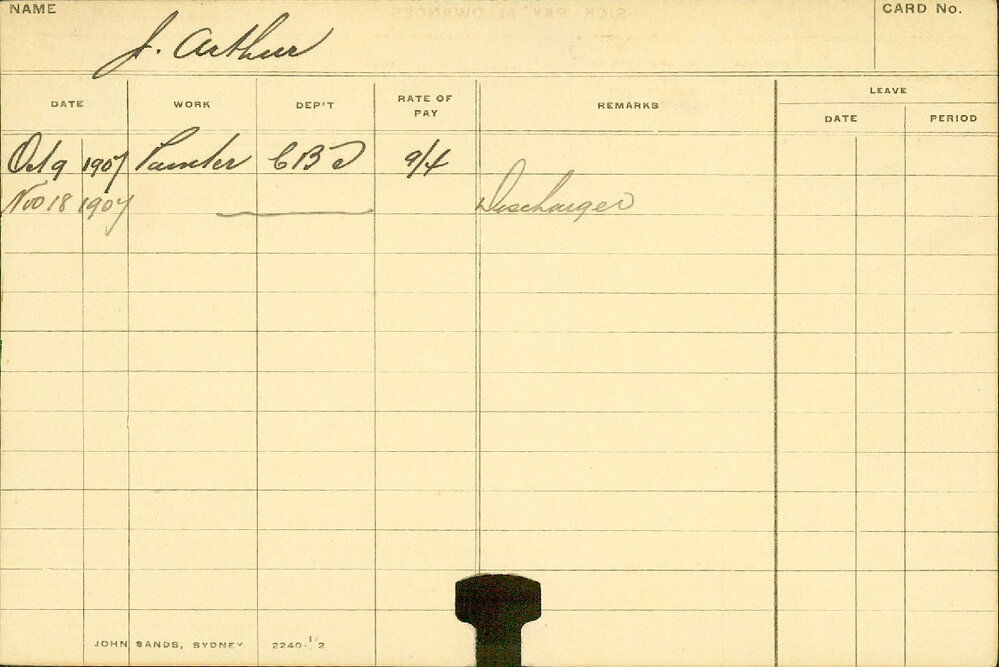 NAME
CARD No.
J. Arthur
DATE WORK DEP'T RATE OF PAY REMARKS LEAVE
DATE PERIOD
Oct 9 1907 Painter 9/4
Nov 18 1907 Discharged
JOHN SANDS, SYDNEY 2240-1/2